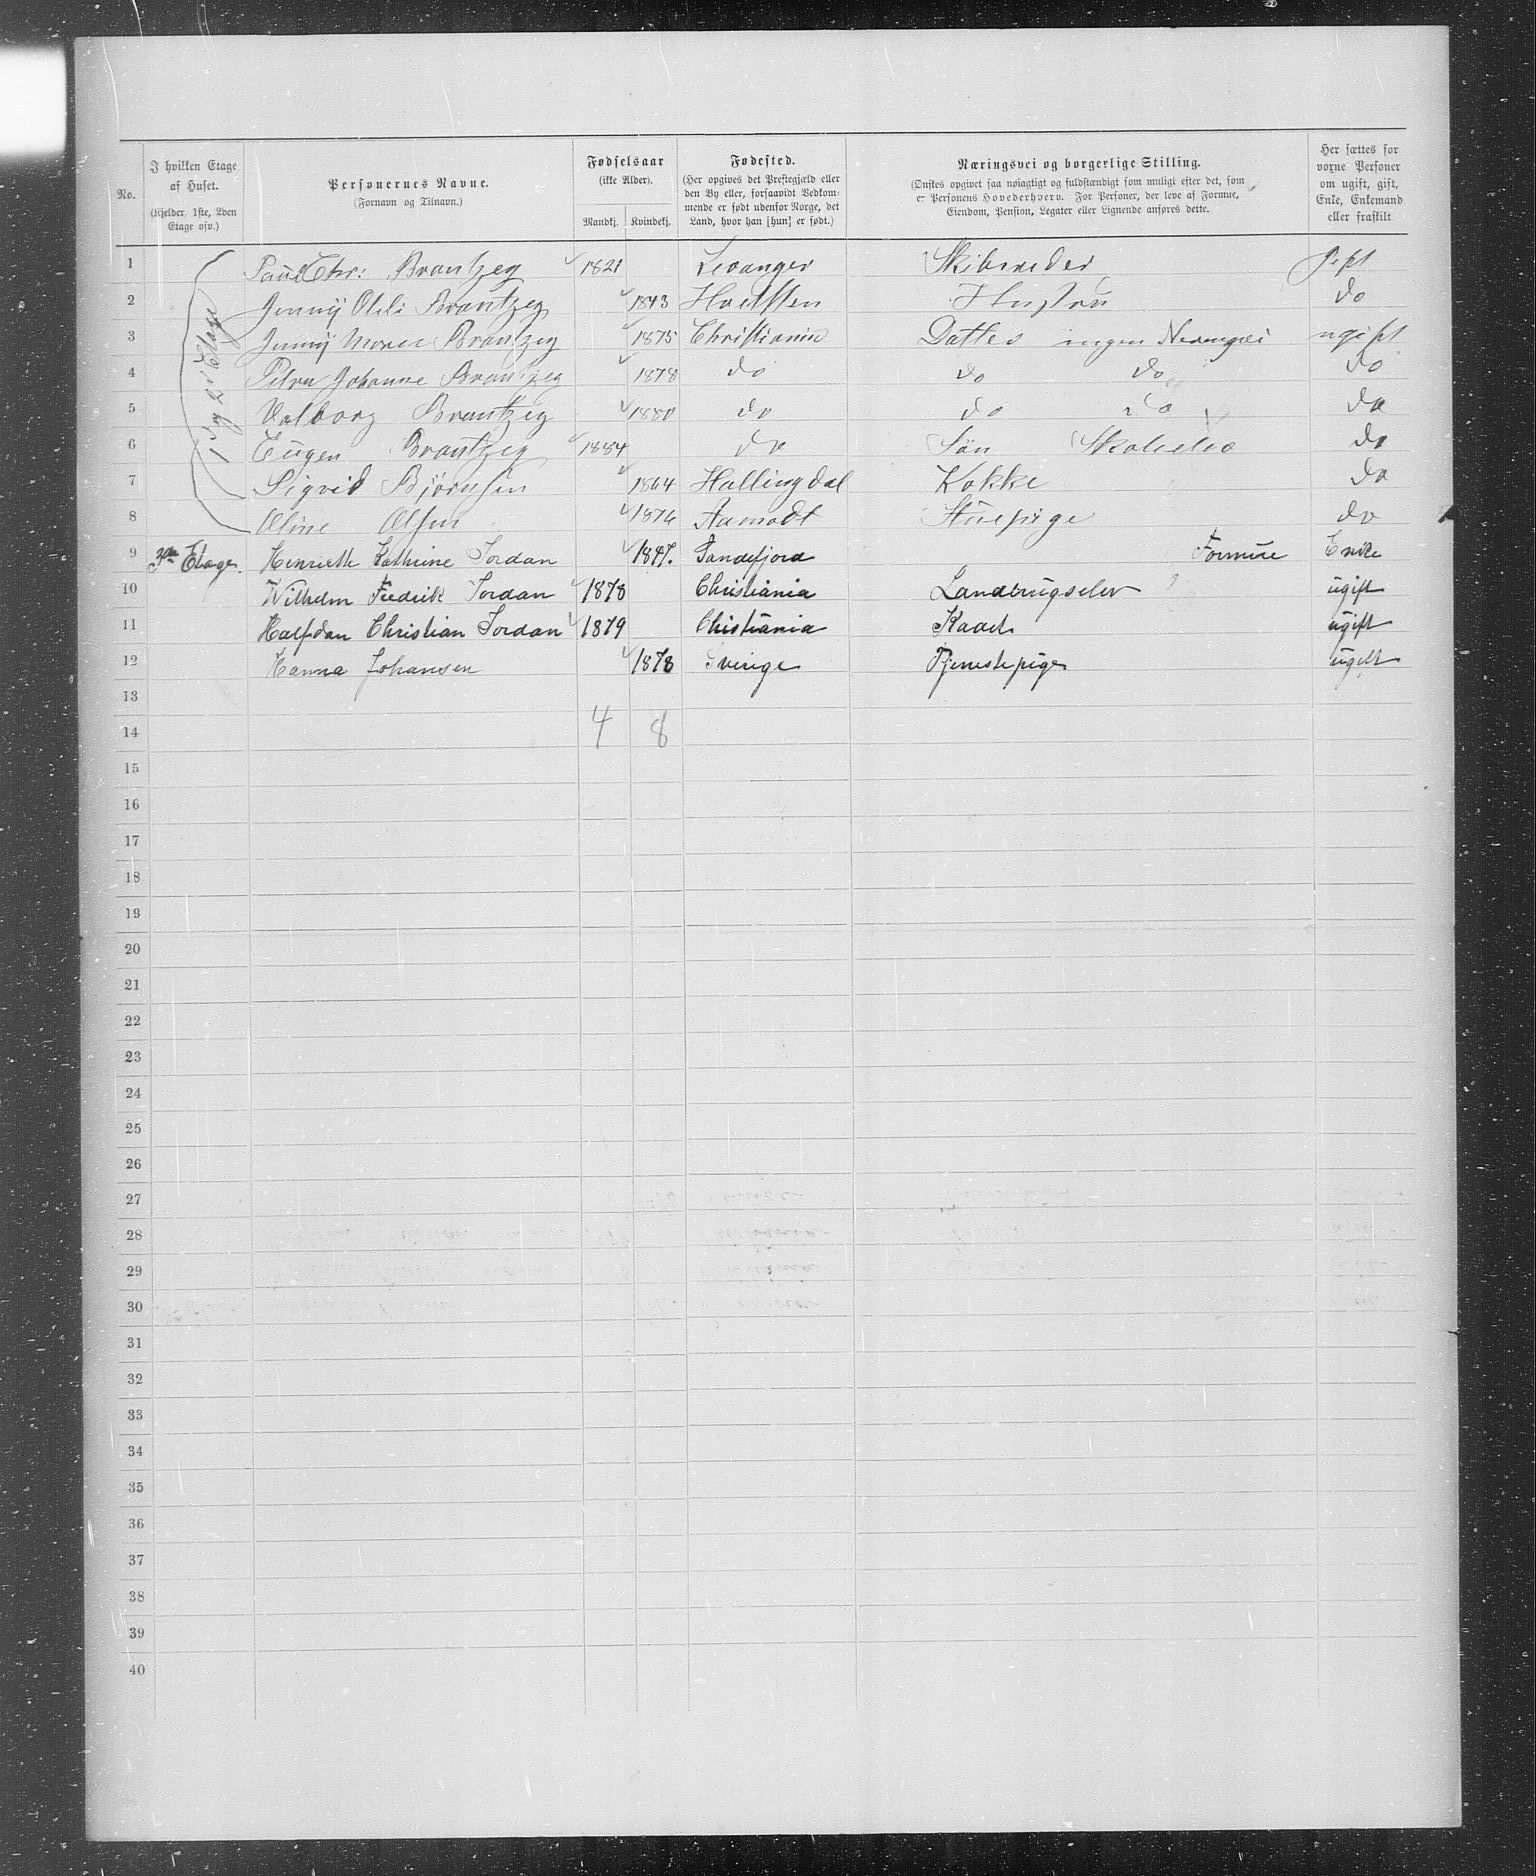 No.
I hvilken Etage af Huset. (Kjelder, 1ste, 2den Etage osv.)
Personernes Navne. (Fornavn og Tilnavn.)
Fødselsaar (ikke Alder). Mandkj. Kvindekj.
Fødested. (Her opgives det Prestegjæld eller den By eller, forsaavidt Vedkommende er født udenfor Norge, det Land, hvor han [hun] er født.)
Næringsvei og borgerlige Stilling. (Ønskes opgivet saa nøiagtigt og fuldstændigt som muligt efter det, som er Personens Hovederhverv. For Personer, der leve af Formue, Eiendom, Pension, Legater eller Lignende anføres dette.
Her sættes for voxne Personer om ugift, gift, Enke, Enkemand eller fraskilt
1 Paul Chr: Brantzeg 1821 Levanger Skibsreder gift
2 Jenny Brantzeg 1843 Holsten Hustru do
3 Jenny Brantzeg 1875 Christiania Datter ingen ugift
4 Petra Johanne Brantzeg 1878 do do do do
5 Valborg Brantzeg 1880 do do do do
6 Eugen Brantzeg 1884 do Søn Skoleelev do
7 Sigrid Bjørnsen 1864 Hallingdal Kokke do
8 Oline Olsen 1876 Aamodt Stuepige do
9 3die Etage. Henriette Kathrine Jordan 1847. Sandefjord Formue Enke
10 Wilhelm Fredrik Jordan 1878 Christiania Landbrugselev ugift
11 Halfdan Christian Jordan 1879 Christiania Kadet ugift
12 Hanna Johansen 1878 Sverige Tjenestepige ugift
13
14 4 8
15
16
17
18
19
20
21
22
23
24
25
26
27
28
29
30
31
32
33
34
35
36
37
38
39
40